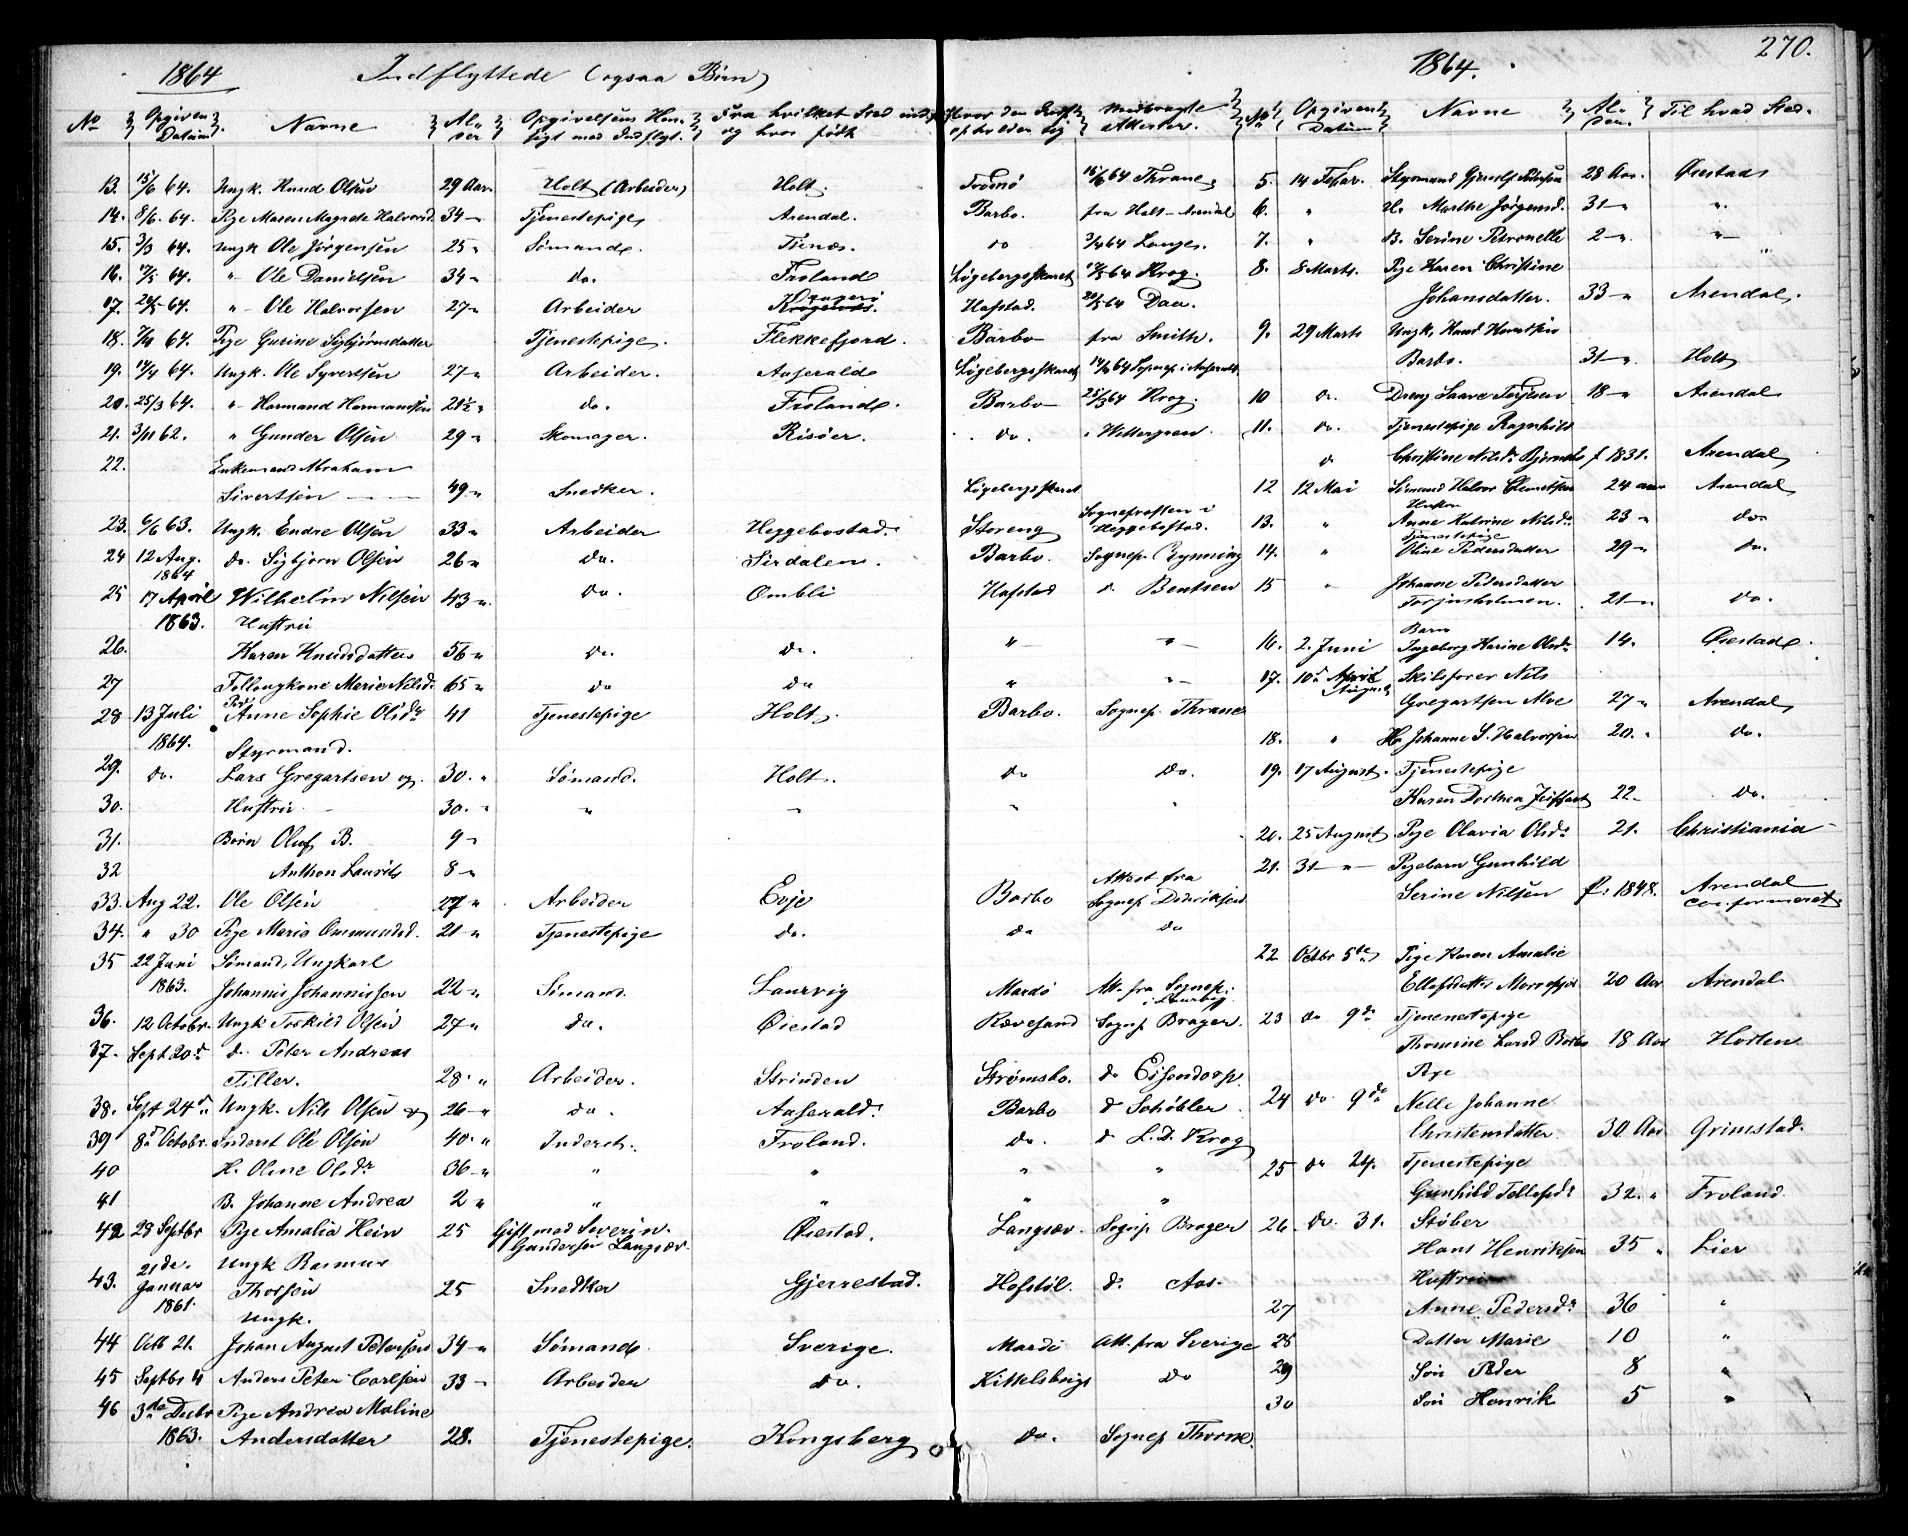 270.
1864 Indflyttede (ogsaa Børn)
1864.
No Opgiven Datum Navne Alder Opgivelsens Hensigt med Indflyt. Fra hvilket Sted indfl. og hvor født Hvor den Indfl. opholder sig Medbragte Attester.
No Opgivent Datum Navne Alder. Til hvad Sted.
13. 15/6 64. Ungk. Knud Olsen 29 Aar. Holt (Arbeider) Holt. Tromø 15/6 64 Thrane.
14. 8/6. 64. Pige Maren Magrete Halvorsd. 34 " Tjenestepige Arendal. Barbo. fra Holt - Arendal
15. 3/3 64. Ungk Ole Jørgensen 25 " Sømand. do 3/3 64 Lange.
16. 64. " Ole Danielsen 34 " do. Froland Løgebergsskaret 64 Krog.
17. 64. " Ole Halvorsen 27 " Arbeider Hafstad. 64 Daa.
18. 64. Pige Gurine Sigbjørnsdatter Tjenestepige. Flekkefjord. Barbo fra Smith.
19. 64. Ungk. Ole Syvertsen 27 " Arbeider. Aaserald Løgebergsskaret 64 Sognep. i Aaserald.
20. 25/3 64. " Hormand Hormandsen 21½ " do. Froland. Barbo 25/3 64 Krog.
21. 3/11 62. " Gunder Olsen 29 " Skomager. Risøer. do. " Wettergreen.
22. Enkemand Abraham
Sivertsen 49 " Snedker. Løgebergsskaret
23. 6/6 63. Ungk. Endre Olsen 33 " Arbeider Heggebostad. Storeng Sognepresten i Heggebostad.
24 12 Aug. 1864 do. Sigbjørn Olsen 26 " do. Sirdalen. Barbo. Sognep. Rynning
25 17 April 1863. Wilhelm Nilsen 43 " do. Ombli Hafstad do Bentsen
Hustru
26. Karen Knudsdatter 56 " do. do. " "
27 Føllougkone Marie Nilsd. 65 " do do " "
28 13 Juli 1864. Pige Anne Sophie Olsdr 41 Tjenestepige Holt. Barbo. Sognep. Thrane
Styrmand.
29. do. Lars Gregartsen og 30. " Sømand. Holt. do do.
30. Hustru 30. " " " " "
31. Børn Oluf B. 9 "
32 Anthon Laurits 8 "
33. Aug 22. Ole Olsen 27 " Arbeider Evje Barbo Attest fra Sognep Dideriksen
34. " 30 Pige Maria Ommundsd. 21 " Tjenestepige do. do do
35 22 Juni 1863. Sømand, Ungkarl
Johannis Johannissen 22 " Sømand. Laurvig Mardø Att. fra Sognep. i Laurvig
36. 12 Octobr. Ungk Toskild Olsen 27 " do. Øiestad Rævesand Sognep Brager.
37. Sept 20d do. Peter Andreas
Tiller. 28. " Arbeider. Strinden Strømsbo. do Eisendorp.
38. Sept 24d Ungk. Nils Olsen 26 " do. Aaserald. Barbo do Schöbler
39 8d Octobr. Inderst Ole Olsen 40. " Inderst. Froland. do. do L. D. Krog
40 H. Oline Olsdr 36 " " " " "
41 B. Johanne Andrea 2 " " " " "
42 28 Septbr Pige Amalia Hein 25 Gift med Severin Gundersen Langsæv. Øiestad. Langsæv. Sognep Brager
43. 21de Januar 1861. Ungk Rasmus
Thorsen 25 Snedker Gjerrestad. Hofstöl. do Aas.
Ungk.
44 Octb 21. Johan August Petersen 34 " Sømand. Sverige. Mardø Att. fra Sverige
45 Septbr 4 Anders Peter Carlsen 33 " Arbeider do. Kittelsbugt do
46 3de Decbr 1863. Pige Andrea Maline
Andersdatter 28. Tjenestepige. Kongsberg do. Sognep Thorne.
5. 14 Febr. Styrmand 28 Aar. Øiestad
6. " H. Marthe Jørgensd. 31 " "
7. " B. Serine Petronelle 2 " "
8. 8 Marts. Pige Karen Christine "
Johansdatter. 33 " Arendal.
9. 29 Marts Ungk.
Barbo. 31 " Holt
10 do. Dreng Terjesen 18 " Arendal
11. do. Tjenestepige Ragnhild
do Christine Nilsdr f 1831. Arendal
12 12 Mai Sømand Halvor Clemetsen 24 aar Arendal
13. " Hustru Anne Katrine Nilsdr 23 " do
14. " Tjenestepige Oline Pedersdatter 29 " do.
15 " Johanne Pedersdatter
Torjusholmen. 21 " do.
16. 2. Juni Barn Ingeborg Karine Olsdr 14. Øiestad.
17. 10de April August Skibsfører Nils
Gregartsen Alve 27 " Arendal
18. " H. Johanne S. Halvorsen 20. " do.
19. 17 August. Tjenestepige
Karen Dorthea 22 " do.
20. 25 August Pige Olavia Olsdr 21. Christiania
21. 31 " Pigebarn Gunhild
Serine Nilsen f. 1848. Arendal confirmeret
22 Octbr 5de Pige Karen Amalie
Ellefsdatter 20 Aar Arendal
23 do 9de Tjenestepige
Thomine Larsd Barbo 18 Aar Horten
Pige
24 do. 9de Nelle Johanne
Christensdatter. 30 Aar Grimstad.
25 do 24. Tjenestepige
Gunhild Tellefsdr 32. " Froland.
26. do. 31. Støber
Hans Henriksen 35 " Lier
Hustru
27 Anne Pedersdr 36 "
28 Datter Marie 10 "
29 Søn Peder 8 "
30 Søn Henrik 5 "